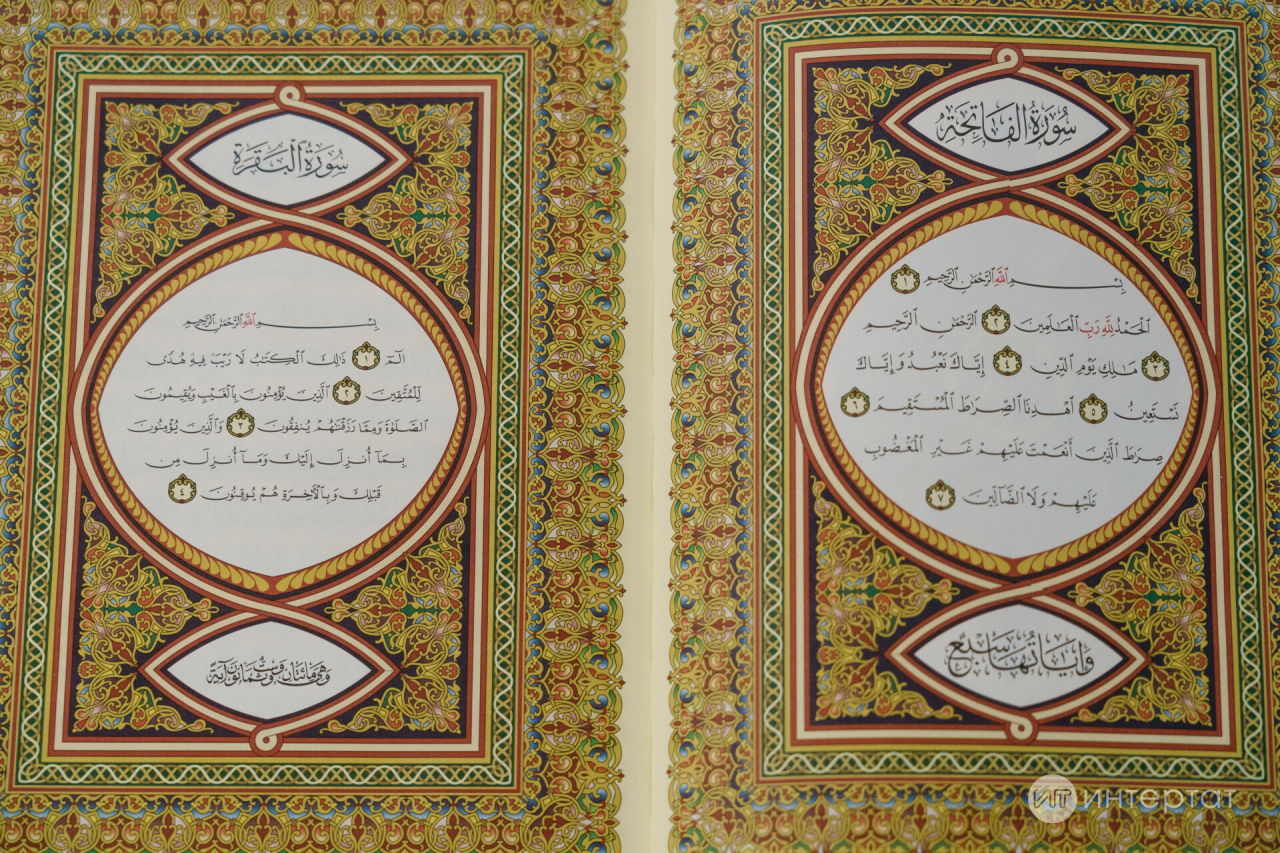 سُورَةُ الْفَاتِحَةِ
بِسْمِ ٱللَّهِ ٱلرَّحْمَٰنِ ٱلرَّحِيمِ ١
ٱلْحَمْدُ لِلَّهِ رَبِّ ٱلْعَالَمِينَ ٢ ٱلرَّحْمَٰنِ ٱلرَّحِيمِ
٣ مَالِكِ يَوْمِ ٱلدِّينِ ٤ إِيَّاكَ نَعْبُدُ وَإِيَّاكَ
نَسْتَعِينُ ٥ ٱهْدِنَا ٱلصِّرَاطَ ٱلْمُسْتَقِيمَ ٦
صِرَاطَ ٱلَّذِينَ أَنْعَمْتَ عَلَيْهِمْ غَيْرِ ٱلْمَغْضُوبِ
عَلَيْهِمْ وَلَا ٱلضَّآلِّينَ ٧
وَآيَاتُهَا سَبْعٌ
سُورَةُ الْبَقَرَةِ
بِسْمِ ٱللَّهِ ٱلرَّحْمَٰنِ ٱلرَّحِيمِ
الٓمٓ ١ ذَٰلِكَ ٱلْكِتَٰبُ لَا رَيْبَ فِيهِ هُدًى
لِّلْمُتَّقِينَ ٢ ٱلَّذِينَ يُؤْمِنُونَ بِٱلْغَيْبِ وَيُقِيمُونَ
ٱلصَّلَوٰةَ وَمِمَّا رَزَقْنَٰهُمْ يُنفِقُونَ ٣ وَٱلَّذِينَ يُؤْمِنُونَ
بِمَآ أُنزِلَ إِلَيْكَ وَمَآ أُنزِلَ مِن
قَبْلِكَ وَبِٱلْآخِرَةِ هُمْ يُوقِنُونَ ٤
وَهِيَ مِائَتَانِ وَسِتٌّ وَثَمَانُونَ آيَةً
ИТ интертат